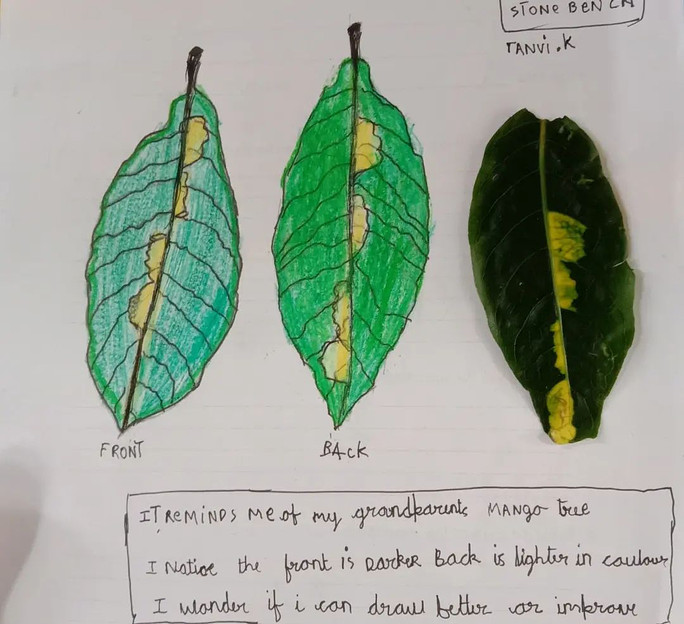 STONE BENCH
TANVI.K
FRONT
BACK
IT REMINDS ME of my grandparents MANGO tree
I Notice the front is DARKER Back is lighter in coulour
I wonder if i can draw better or improve